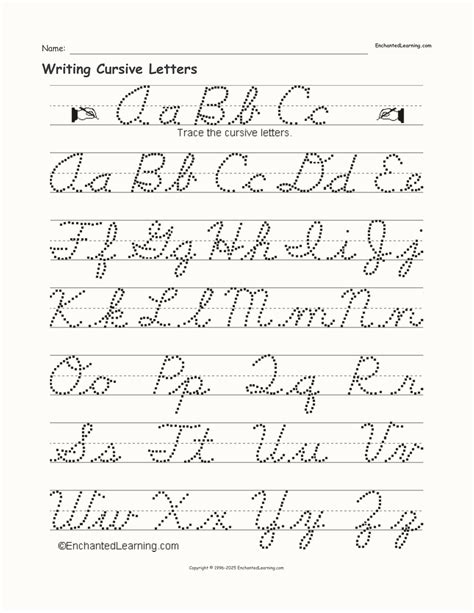 Name:
EnchantedLearning.com
Writing Cursive Letters
Aa Bb Cc
Trace the cursive letters.
Aa Bb Cc Dd Ee
Ff Gg Hh Ii Jj
Kk Ll Mm Nn
Oo Pp Qq Rr
Ss Tt Uu Vv
Ww Xx Yy Zz
©EnchantedLearning.com
Copyright © 1996-2025 EnchantedLearning.com